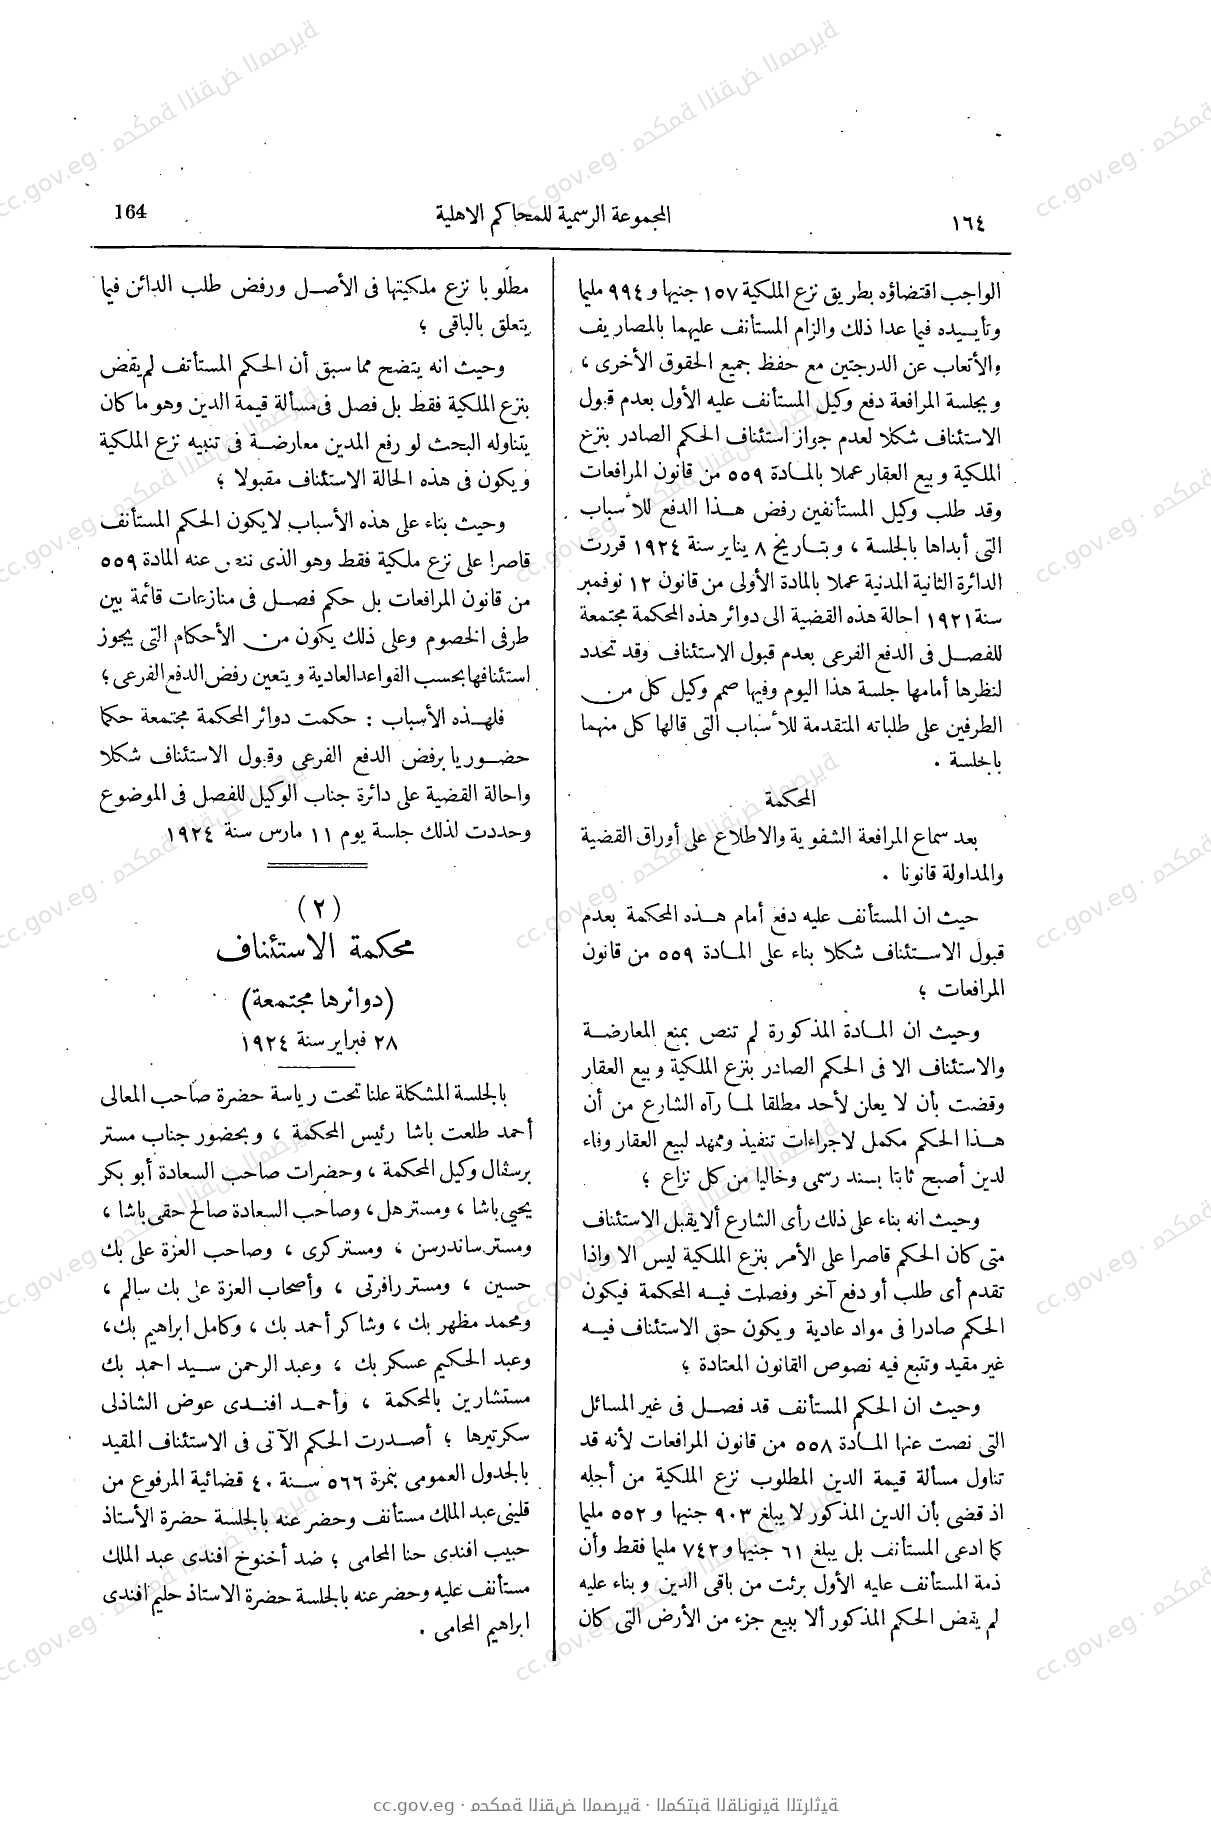 ١٦٤
المجموعة الرسمية للمحاكم الاهلية
164
الواجب اقتضاؤه بطريق نزع الملكية ١٥٧ جنيها و ٩٩٤ مليما
وتأييده فيما عدا ذلك والزام المستأنف عليهما بالمصاريف
والأتعاب عن الدرجتين مع حفظ جميع الحقوق الأخرى ،
وبجلسة المرافعة دفع وكيل المستأنف عليه الأول بعدم قبول
الاستئناف شكلا لعدم جواز استئناف الحكم الصادر بنزع
الملكية وبيع العقار عملا بالمادة ٥٥٩ من قانون المرافعات
وقد طلب وكيل المستأنفين رفض هذا الدفع للأسباب
التى أبداها بالجلسة ، وبتاريخ ٨ يناير سنة ١٩٢٤ قررت
الدائرة الثانية المدنية عملا بالمادة الأولى من قانون ١٢ نوفمبر
سنة ١٩٢١ احالة هذه القضية الى دوائر هذه المحكمة مجتمعة
للفصل فى الدفع الفرعى بعدم قبول الاستئناف وقد تحدد
لنظرها أمامها جلسة هذا اليوم وفيها صمم وكيل كل من
الطرفين على طلباته المتقدمة للأسباب التى قالها كل منهما
بالجلسة .
المحكمة
بعد سماع المرافعة الشفوية والاطلاع على أوراق القضية
والمداولة قانونا .
حيث ان المستأنف عليه دفع أمام هذه المحكمة بعدم
قبول الاستئناف شكلا بناء على المادة ٥٥٩ من قانون
المرافعات ؛
وحيث ان المادة المذكورة لم تنص بمنع المعارضة
والاستئناف الا فى الحكم الصادر بنزع الملكية وبيع العقار
وقضت بأن لا يعلن لأحد مطلقا لما رآه الشارع من أن
هذا الحكم مكمل لاجراءات تنفيذ وممهد لبيع العقار وفاء
لدين أصبح ثابتا بسند رسمى وخاليا من كل نزاع ؛
وحيث انه بناء على ذلك رأى الشارع ألا يقبل الاستئناف
متى كان الحكم قاصرا على الأمر بنزع الملكية ليس الا واذا
تقدم أى طلب أو دفع آخر وفصلت فيه المحكمة فيكون
الحكم صادرا فى مواد عادية ويكون حق الاستئناف فيه
غير مقيد وتتبع فيه نصوص القانون المعتادة ؛
وحيث ان الحكم المستأنف قد فصل فى غير المسائل
التى نصت عنها المادة ٥٥٨ من قانون المرافعات لأنه قد
تناول مسألة قيمة الدين المطلوب نزع الملكية من أجله
اذ قضى بأن الدين المذكور لا يبلغ ٩٠٣ جنيها و ٥٥٢ مليما
كما ادعى المستأنف بل يبلغ ٦١ جنيها و ٧٤٢ مليما فقط وأن
ذمة المستأنف عليه الأول برئت من باقى الدين وبناء عليه
لم يقض الحكم المذكور ألا ببيع جزء من الأرض التى كان
مطلوبا نزع ملكيتها فى الأصل ورفض طلب الدائن فيما
يتعلق بالباقى ؛
وحيث انه يتضح مما سبق أن الحكم المستأنف لم يقض
بنزع الملكية فقط بل فصل فى مسألة قيمة الدين وهو ما كان
يتناوله البحث لو رفع المدين معارضة فى تنبيه نزع الملكية
ويكون فى هذه الحالة الاستئناف مقبولا ؛
وحيث بناء على هذه الأسباب لا يكون الحكم المستأنف
قاصرا على نزع ملكية فقط وهو الذى تنص عنه المادة ٥٥٩
من قانون المرافعات بل حكم فصل فى منازعات قائمة بين
طرفى الخصوم وعلى ذلك يكون من الأحكام التى يجوز
استئنافها بحسب القواعد العادية ويتعين رفض الدفع الفرعى ؛
فلهذه الأسباب : حكمت دوائر المحكمة مجتمعة حكما
حضوريا برفض الدفع الفرعى وقبول الاستئناف شكلا
واحالة القضية على دائرة جناب الوكيل للفصل فى الموضوع
وحددت لذلك جلسة يوم ١١ مارس سنة ١٩٢٤
(٢)
محكمة الاستئناف
(دوائرها مجتمعة)
٢٨ فبراير سنة ١٩٢٤
بالجلسة المشكلة علنا تحت رياسة حضرة صاحب المعالى
أحمد طلعت باشا رئيس المحكمة ، وبحضور جناب مستر
برسڤال وكيل المحكمة ، وحضرات صاحب السعادة أبو بكر
يحيى باشا ، ومستر هل ، وصاحب السعادة صالح حقى باشا ،
ومستر ساندرسن ، ومستر كرى ، وصاحب العزة على بك
حسين ، ومستر رافرتى ، وأصحاب العزة على بك سالم ،
ومحمد مظهر بك ، وشاكر أحمد بك ، وكامل ابراهيم بك ،
وعبد الحكيم عسكر بك ، وعبد الرحمن سيد احمد بك
مستشارين بالمحكمة ، وأحمد افندى عوض الشاذلى
سكرتيرها ؛ أصدرت الحكم الآتى فى الاستئناف المقيد
بالجدول العمومى بنمرة ٥٦٦ سنة ٤٠ قضائية المرفوع من
قلينى عبد الملك مستأنف وحضر عنه بالجلسة حضرة الأستاذ
حبيب افندى حنا المحامى ؛ ضد أخنوخ افندى عبد الملك
مستأنف عليه وحضر عنه بالجلسة حضرة الاستاذ حليم افندى
ابراهيم المحامى .
cc.gov.eg · محكمة النقض المصرية · المكتبة القانونية التراثية